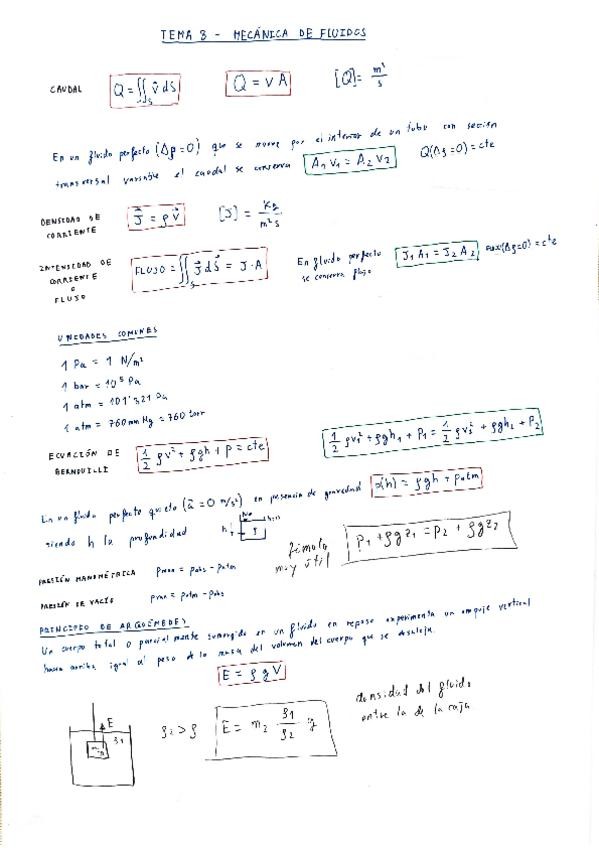 TEMA 8 - MECÁNICA DE FLUIDOS
CAUDAL Q = ∬_S v⃗ dS Q = v A [Q] = m³/s
En un fluido perfecto (Δρ=0) que se mueve por el interior de un tubo con sección
transversal variable el caudal se conserva A₁ v₁ = A₂ v₂ Q(Δρ=0) = cte
DENSIDAD DE CORRIENTE J⃗ = ρ v⃗ [J] = Kg/m² s
INTENSIDAD DE CORRIENTE O FLUJO FLUJO = ∬_S J⃗ dS⃗ = J·A En fluido perfecto se conserva flujo J₁ A₁ = J₂ A₂ (Δρ=0) = cte
UNIDADES COMUNES
1 Pa = 1 N/m²
1 bar = 10⁵ Pa
1 atm = Pa
1 atm = 760 mm Hg = 760 torr
ECUACIÓN DE BERNOUILLI ½ ρv² + ρgh + p = cte ½ ρv₁² + ρgh₁ + P₁ = ½ ρv₂² + ρgh₂ + P₂
En un fluido perfecto quieto (a⃗ = 0 m/s²) en presencia de gravedad p(h) = ρgh + patm
siendo h la profundidad h
fórmula muy útil P₁ + ρgz₁ = P₂ + ρgz₂
PRESIÓN MANOMÉTRICA pman = pabs - patm
PRESIÓN DE VACÍO pvac = patm - pabs
PRINCIPIO DE ARQUÍMEDES
Un cuerpo total o parcialmente sumergido en un fluido en reposo experimenta un empuje vertical
hacia arriba, igual al peso de la masa del volumen del cuerpo que se desaloja.
E = ρ g V
E ρ₁ ρ₂ > ρ E = m₂ ρ₁/ρ₂ g densidad del fluido
entre la de la caja